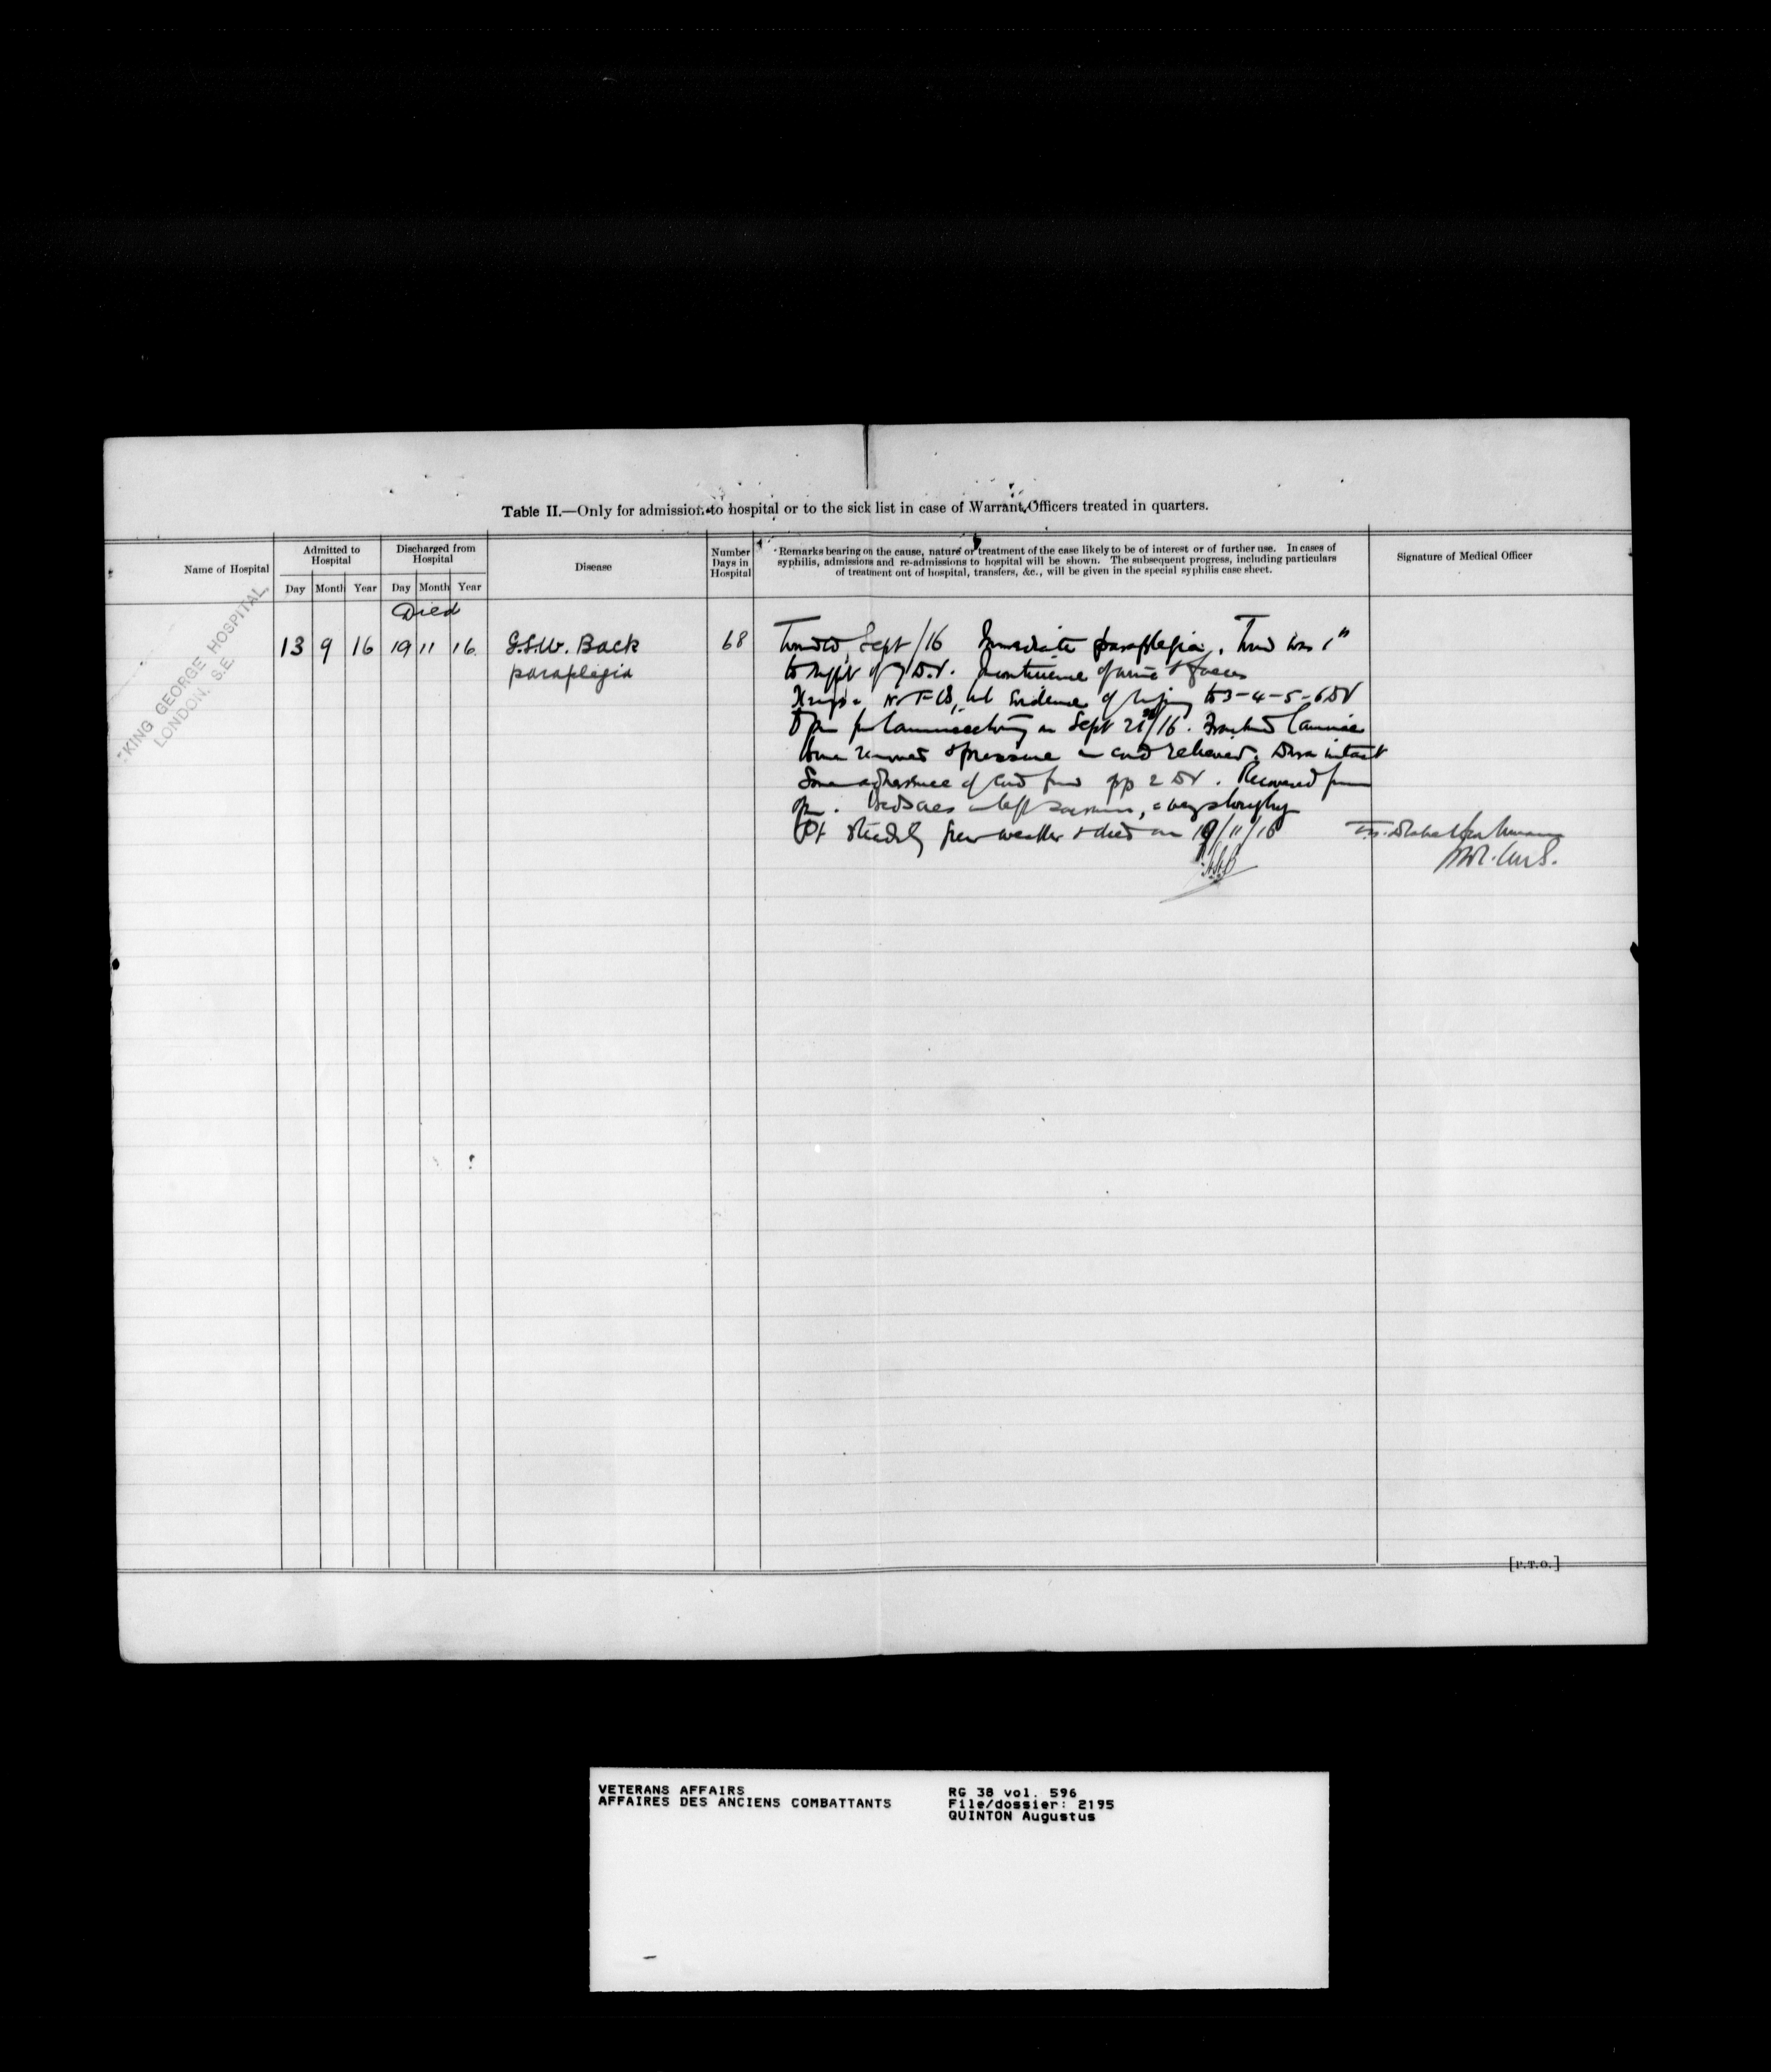 Table II.—Only for admission to hospital or to the sick list in case of Warrant Officers treated in quarters.
Name of Hospital
Admitted to Hospital
Discharged from Hospital
Disease
Number Days in Hospital
Remarks bearing on the cause, nature or treatment of the case likely to be of interest or of further use. In cases of
syphilis, admissions and re-admissions to hospital will be shown. The subsequent progress, including particulars
of treatment out of hospital, transfers, &c., will be given in the special syphilis case sheet.
Signature of Medical Officer
Day Month Year Day Month Year
Died
KING GEORGE HOSPITAL,
LONDON. S.E.
13 9 16 19 11 16 G.S.W. Back 68 Sept/16 Immediate paraplegia.
paraplegia
to right of 7 D.V. Incontinence of urine & faeces
evidence of injury to 3-4-5-6 DV
for laminectomy on Sept 21/16.
removed & pressure on cord relieved. Dura intact
Some adherence of cord opp 2 DV. Recovered from
op. Bedsores
Pt steadily grew weaker & died on 19/11/16
[P.T.O.]
VETERANS AFFAIRS
AFFAIRES DES ANCIENS COMBATTANTS
RG 38 vol. 596
File/dossier: 2195
QUINTON Augustus